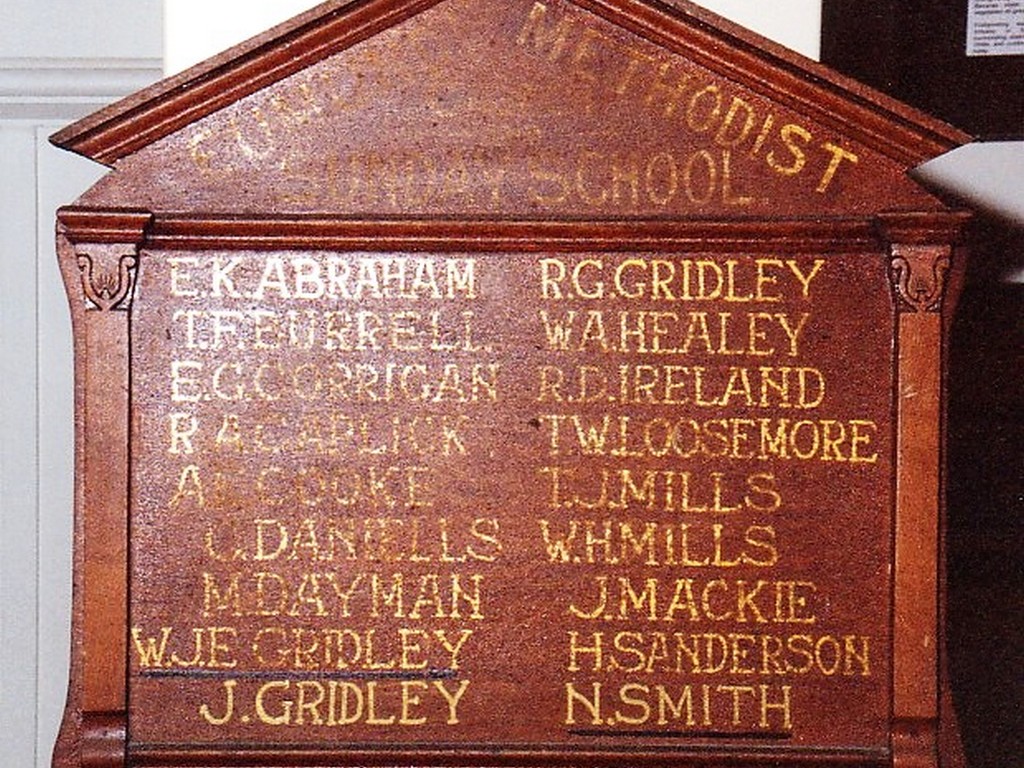 METHODIST
SUNDAY SCHOOL
E.K.ABRAHAM
T.F.BURRELL.
E.G.CORRIGAN
R A CAPLICK
A COOKE
C.DANIELLS
M.DAYMAN
W.J.E GRIDLEY
J.GRIDLEY
R.G.GRIDLEY
W.A.HEALEY
R.D.IRELAND
T.W.LOOSEMORE
T.J.MILLS
W.H.MILLS
J.MACKIE
H.SANDERSON
N.SMITH